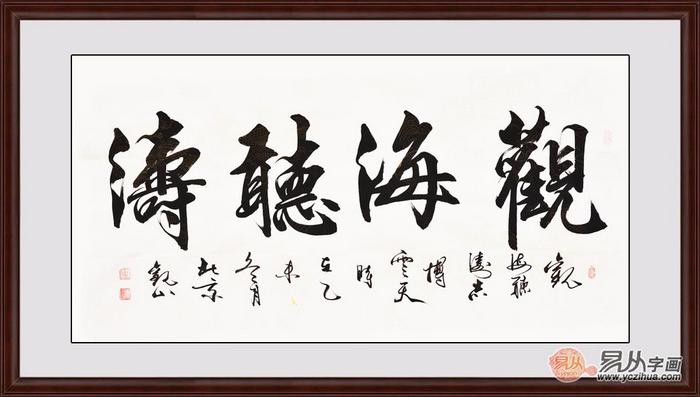 觀海聽濤
觀
海聽
濤古
博
雲天
時
在乙
未
冬月
北京
觀山
易从字画
www.yczihua.com